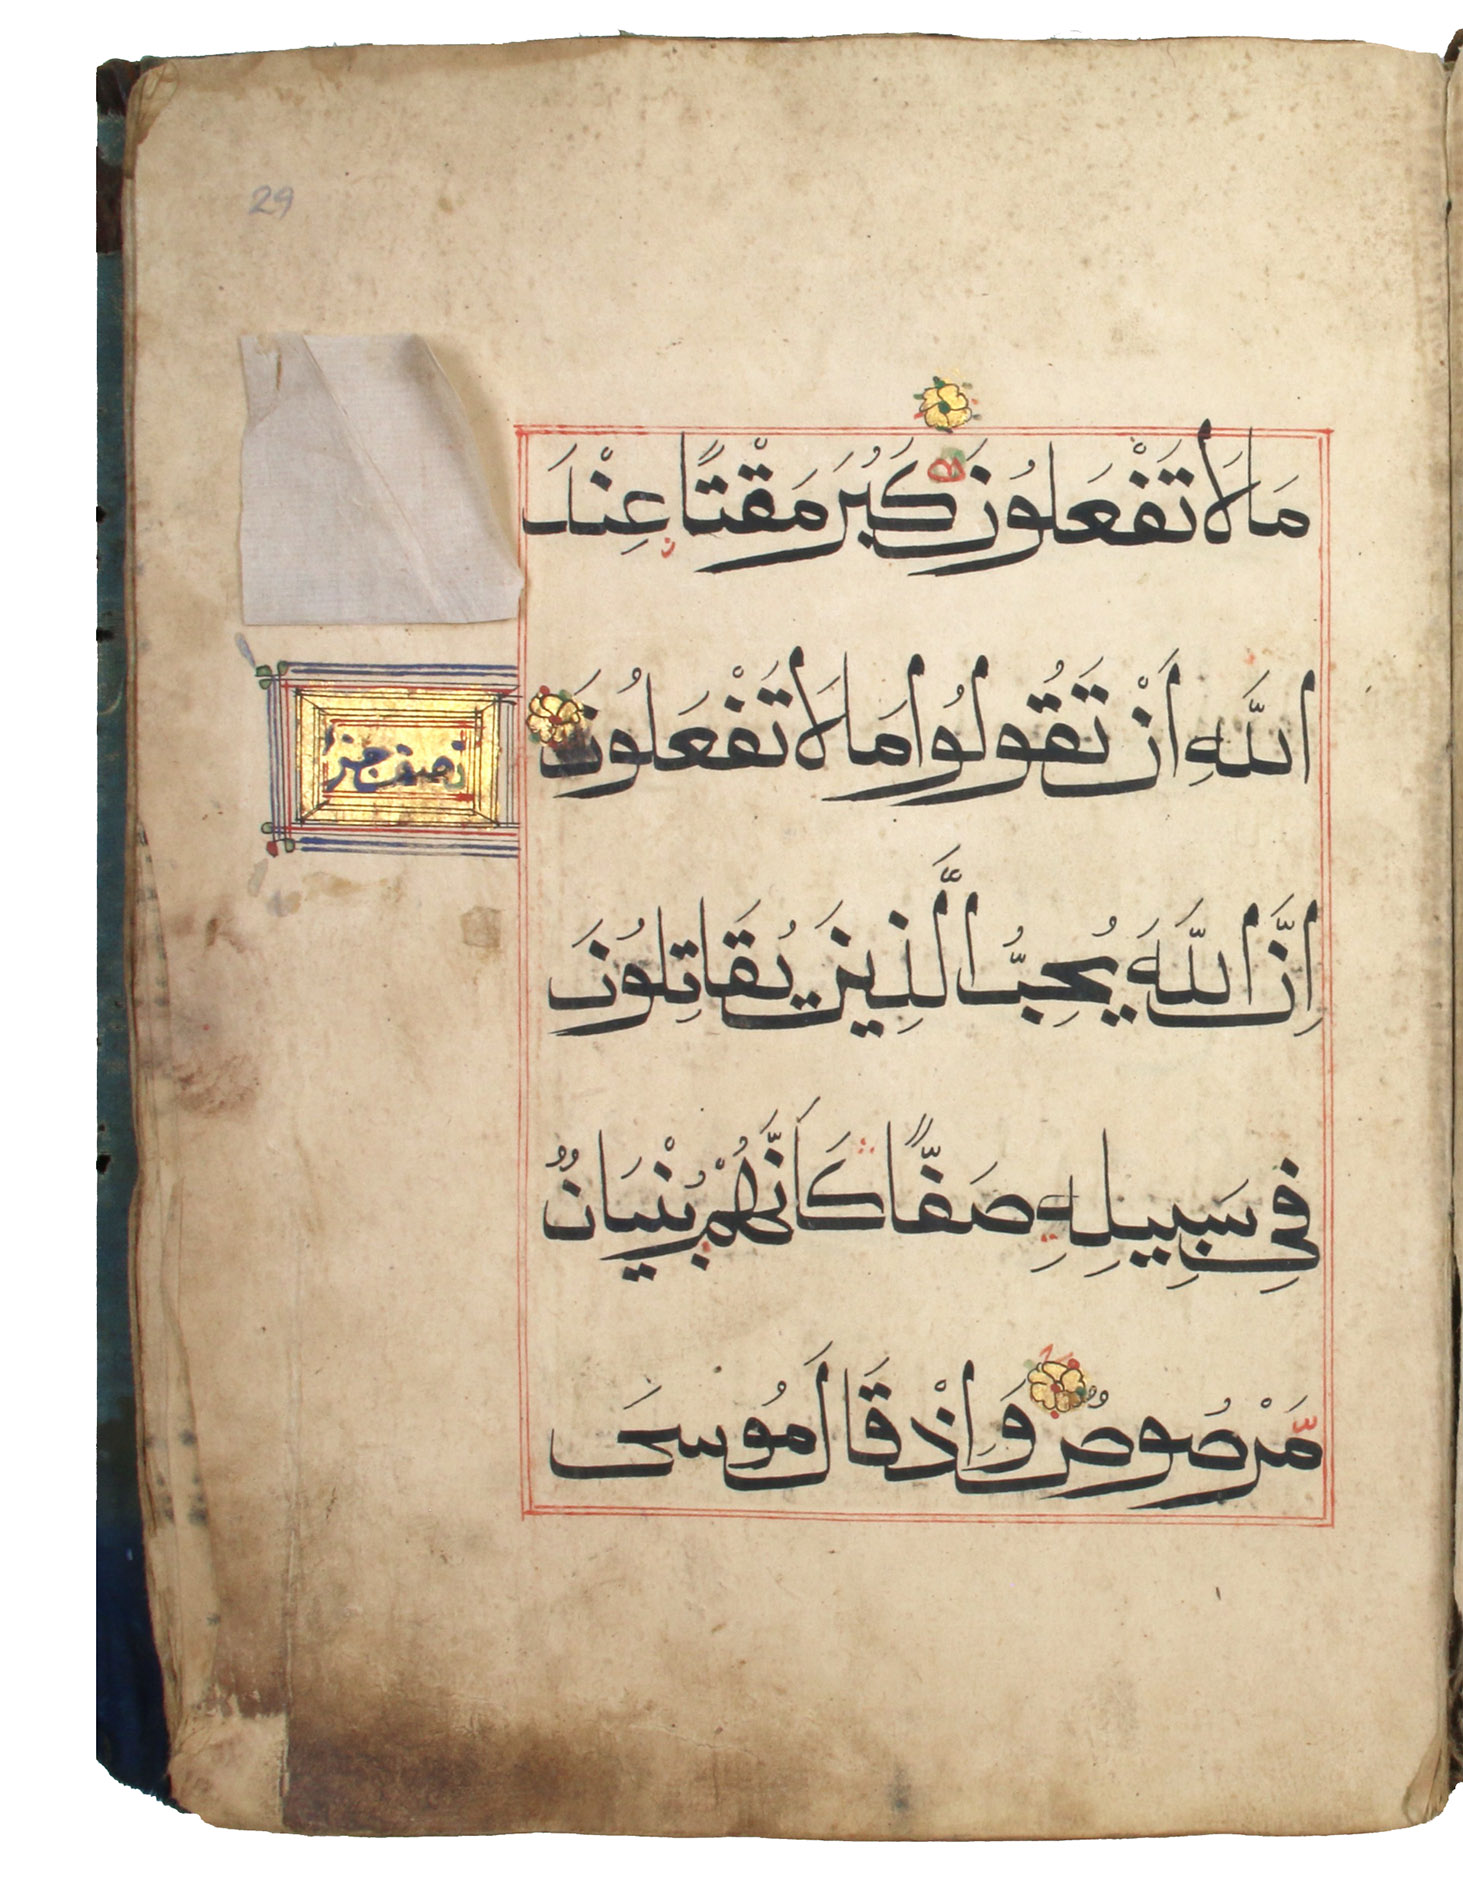 29
مَا لَا تَفْعَلُونَ كَبُرَ مَقْتًا عِنْدَ
اللَّهِ أَنْ تَقُولُوا مَا لَا تَفْعَلُونَ
نصف جزء
اِنَّ اللَّهَ يُحِبُّ الَّذِينَ يُقَاتِلُونَ
فِي سَبِيلِهِ صَفًّا كَأَنَّهُمْ بُنْيَانٌ
مَّرْصُوصٌ وَاِذْ قَالَ مُوسَى